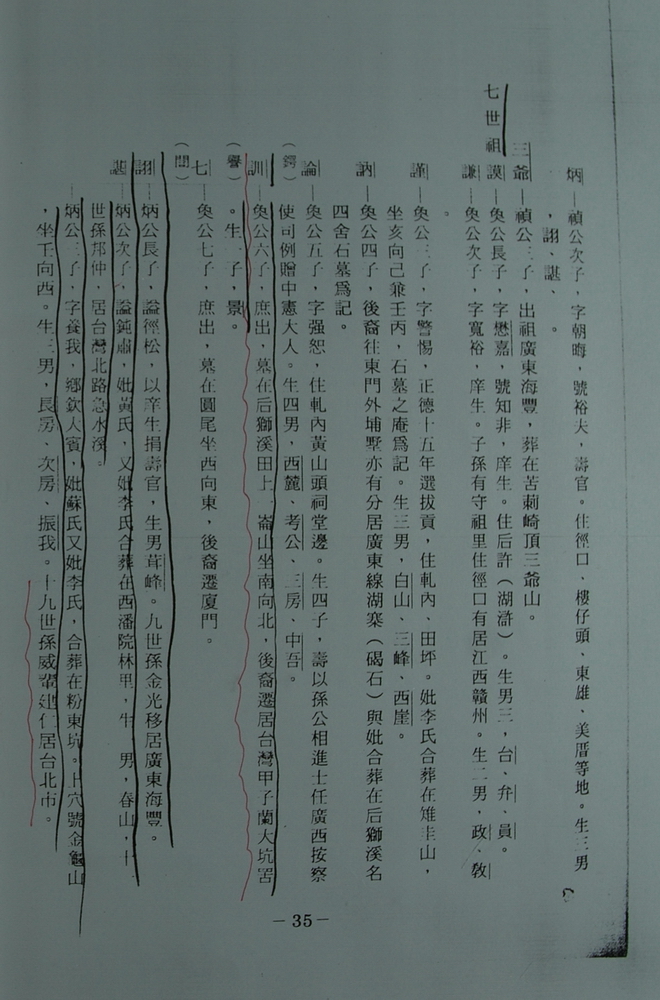 炳—禎公次子，字朝晦，號裕夫，壽官。住徑口、樓仔頭、東雄、美厝等地。生三男
，詡、諶、　。
三爺—禎公三子，出祖廣東海豐，葬在苦莿崎頂三爺山。
七世祖
謨—奐公長子，字懋嘉，號知非，庠生。住后許（湖滸）。生男三，台、弁、員。
謙—奐公次子，字寬裕，庠生。子孫有守祖里住徑口有居江西贛州。生二男，政、敎
。
謹—奐公三子，字警惕，正德十五年選拔貢，住軋內、田坪。妣李氏合葬在雉圭山，
坐亥向己兼壬丙，石墓之庵爲記。生三男，白山、三峰、西崖。
訥—奐公四子，後裔往東門外埔墅亦有分居廣東線湖寨（碣石）與妣合葬在后獅溪名
四舍石墓爲記。
論—奐公五子，字强恕，住軋內黃山頭祠堂邊。生四子，壽以孫公相進士任廣西按察
（鍔）使司例贈中憲大人。生四男，西麓、考公、三房、中吾。
訓—奐公六子，庶出，墓在后獅溪田上一崙山坐南向北，後裔遷居台灣甲子蘭大坑罟
（譽）。生一子，景。
七—奐公七子，庶出，墓在圓尾坐西向東，後裔遷廈門。
（誾）
詡—炳公長子，諡徑松，以庠生捐壽官，生男葺峰。九世孫金光移居廣東海豐。
諶—炳公次子，諡鈍肅，妣黃氏，又妣李氏合葬在西潘院林甲，生一男，春山，十
世孫邦仲，居台灣北路急水溪。
炳公三子，字養我，鄉飲大賓，妣蘇氏又妣李氏，合葬在粉東坑。上穴號金龜山
，坐壬向西。生三男，長房、次房、振我。十九世孫威輦連仁居台北市。
－35－